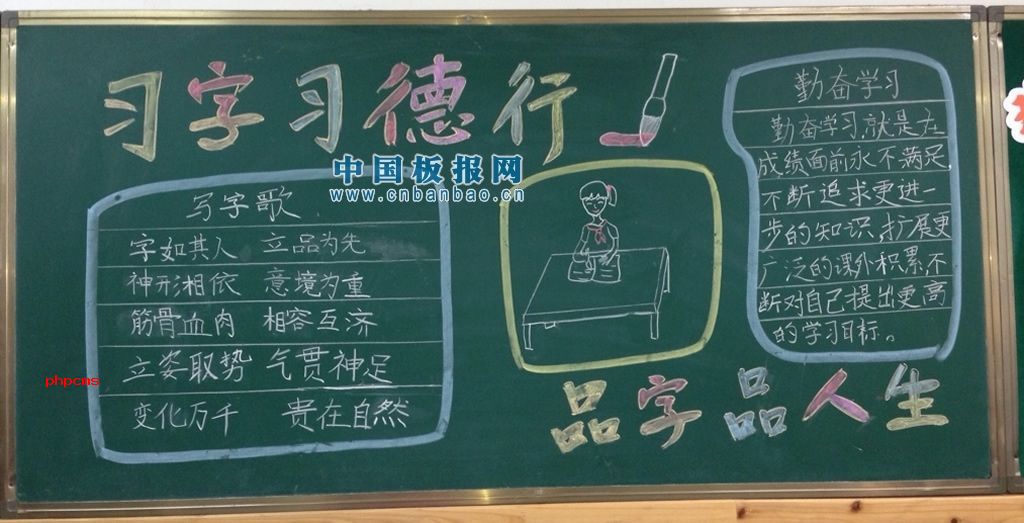 习字习德行
中国板报网
www.cnbanbao.cn
写字歌
字如其人 立品为先
神形相依 意境为重
筋骨血肉 相容互济
立姿取势 气贯神足
变化万千 贵在自然
phpcms
勤奋学习
勤奋学习,就是在
成绩面前永不满足,
不断追求更进一
步的知识,扩展更
广泛的课外积累,不
断对自己提出更高
的学习目标。
品字品人生